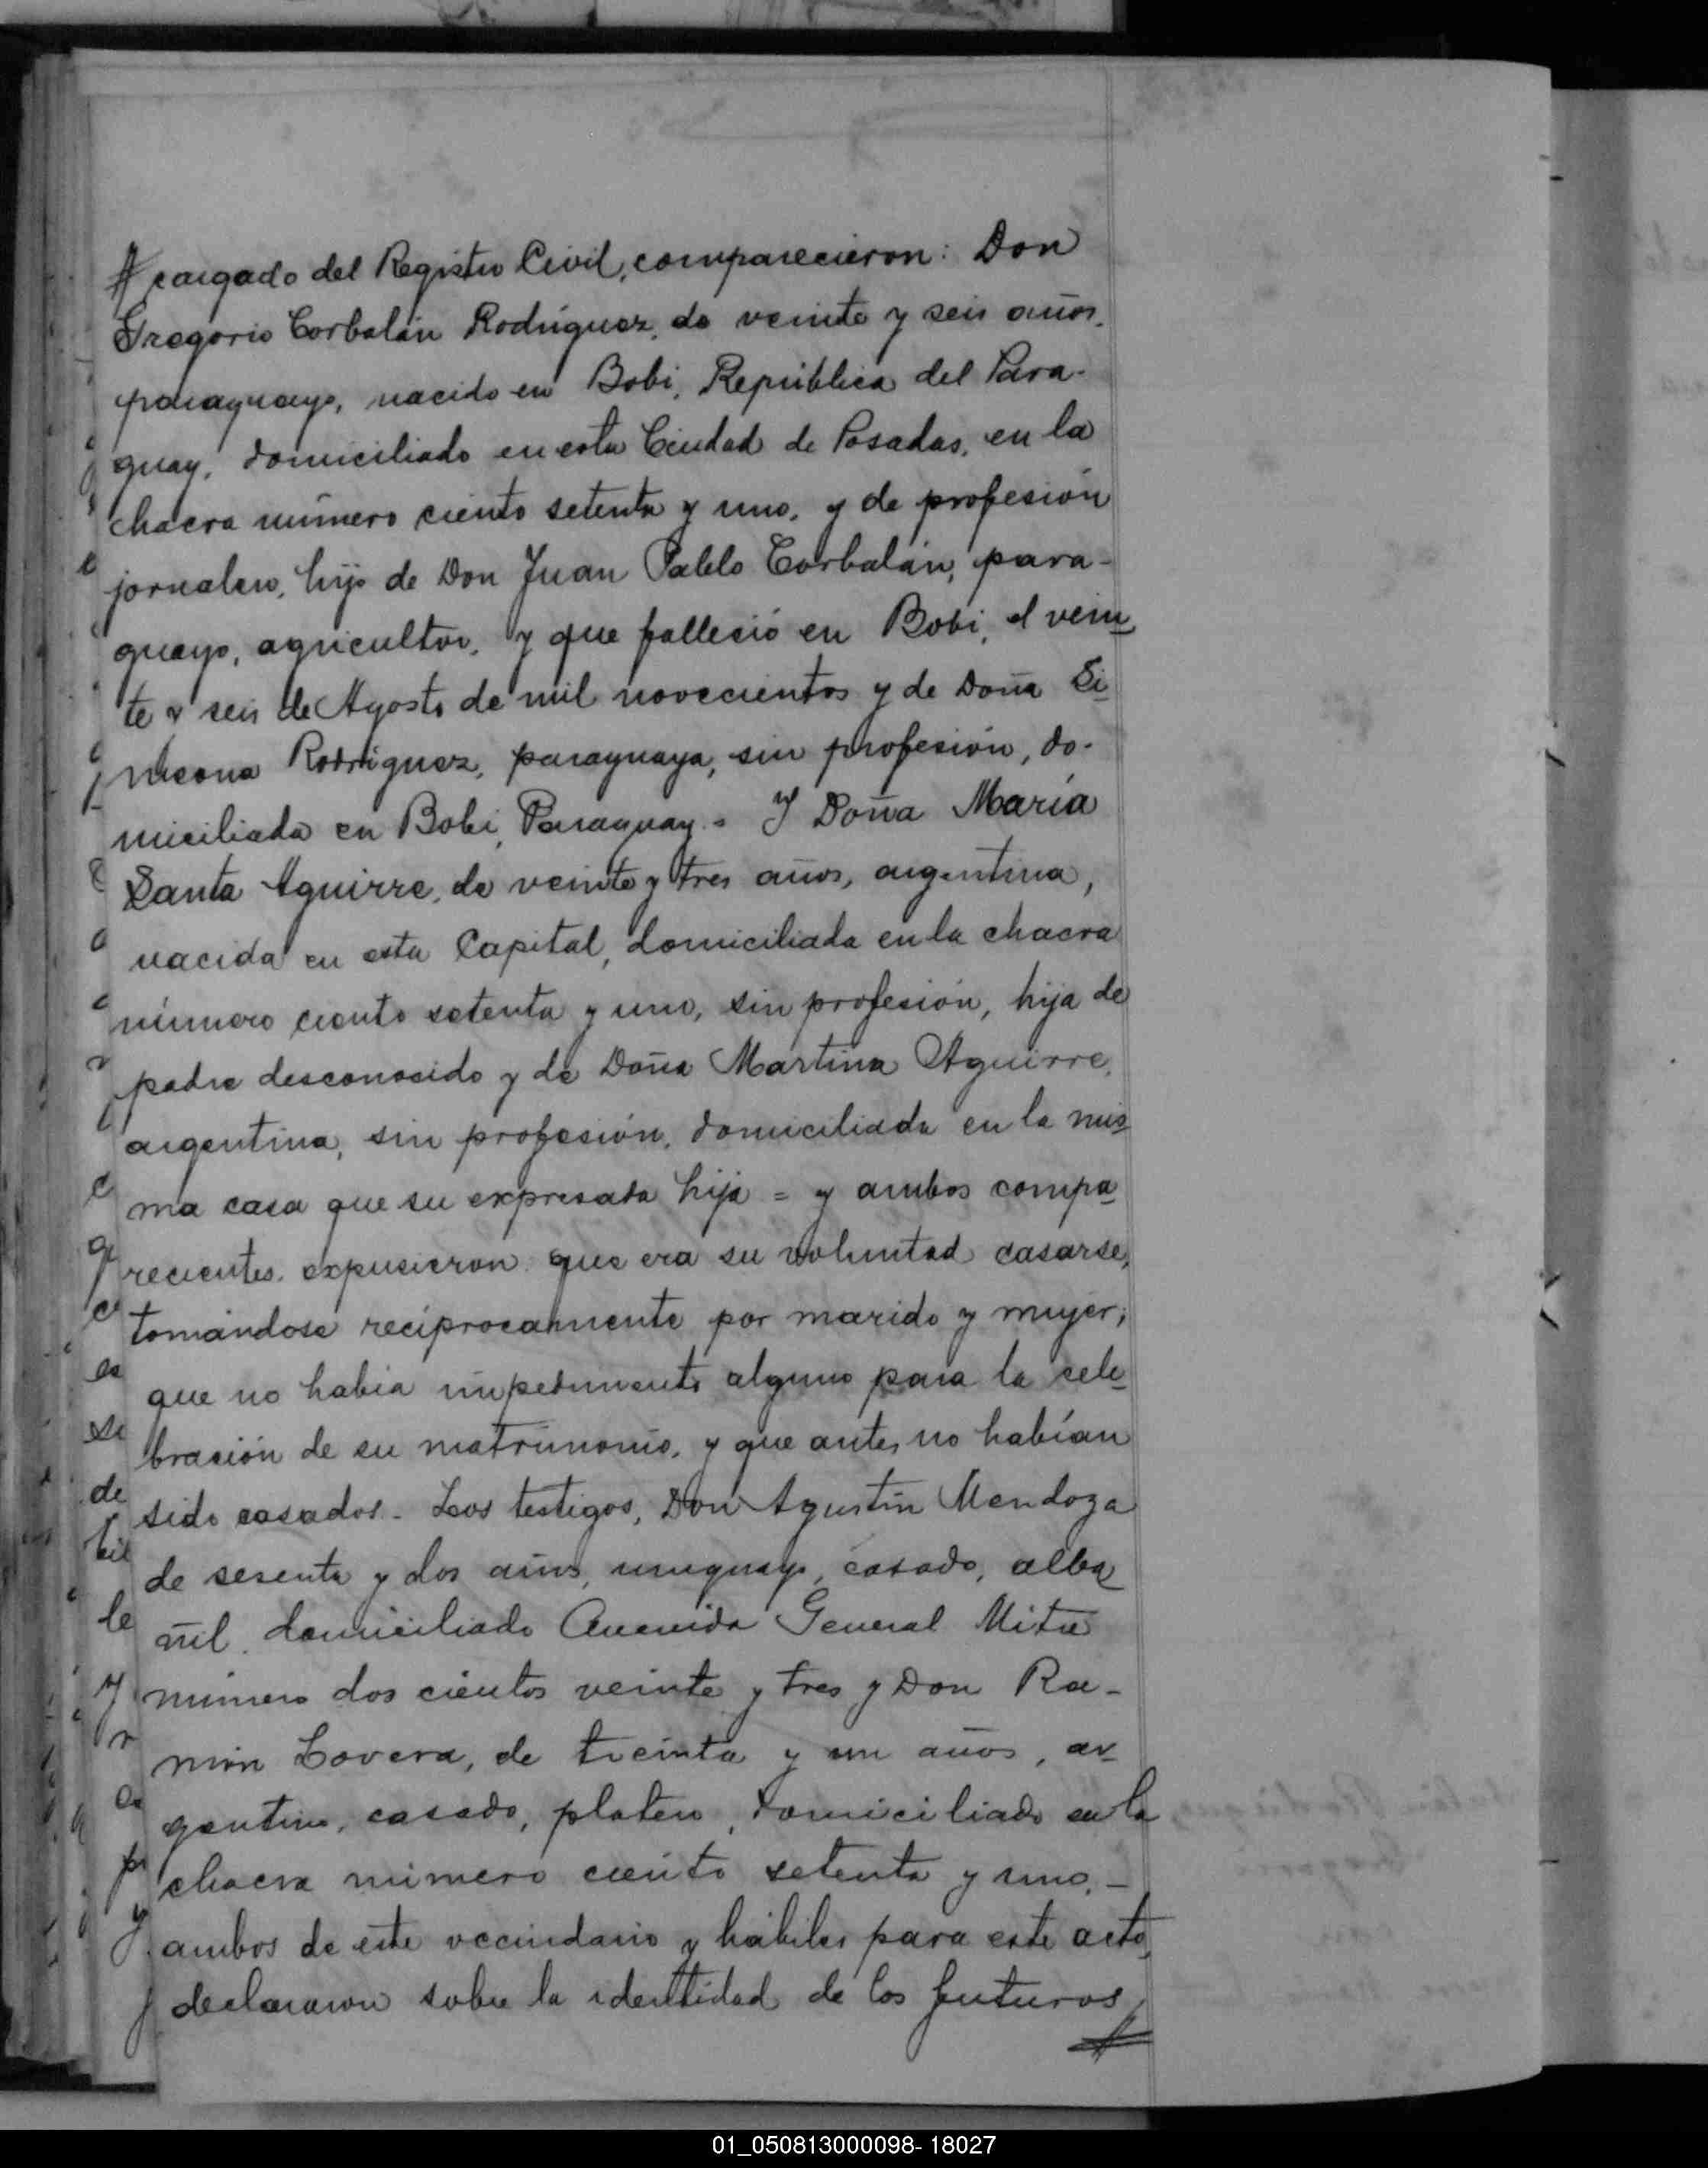 cargado del Registro Civil, comparecieron: Don
Gregorio Corbalán Rodríguez, de veinte y seis años,
paraguayo, nacido en Bobi, República del Para-
guay, domiciliado en esta Ciudad de Posadas, en la
chacra número ciento setenta y uno, y de profesión
jornalero, hijo de Don Juan Pablo Corbalán, para-
guayo, agricultor, y que falleció en Bobi, el vein
te y seis de Agosto de mil novecientos y de Doña Si
meona Rodríguez, paraguaya, sin profesión, do-
miciliada en Bobi, Paraguay = Y Doña María
Santa Aguirre, de veinte y tres años, argentina,
nacida en esta Capital, domiciliada en la chacra
número ciento setenta y uno, sin profesión, hija de
padre desconocido y de Doña Martina Aguirre,
argentina, sin profesión, domiciliada en la mis
ma casa que su expresada hija = y ambos compa
recientes expusieron que era su voluntad casarse,
tomándose recíprocamente por marido y mujer;
que no había impedimento alguno para la cele
bración de su matrimonio, y que antes no habían
sido casados - Los testigos, Don Agustín Mendoza
de sesenta y dos años, uruguayo, casado, alba
ñil, domiciliado Avenida General Mitre
número dos cientos veinte y tres y Don Ra-
món Lovera, de treinta y un años, ar
gentino, casado, platero, domiciliado en la
chacra número ciento setenta y uno, -
ambos de este vecindario y hábiles para este acto,
declararon sobre la identidad de los futuros
01_050813000098- 18027